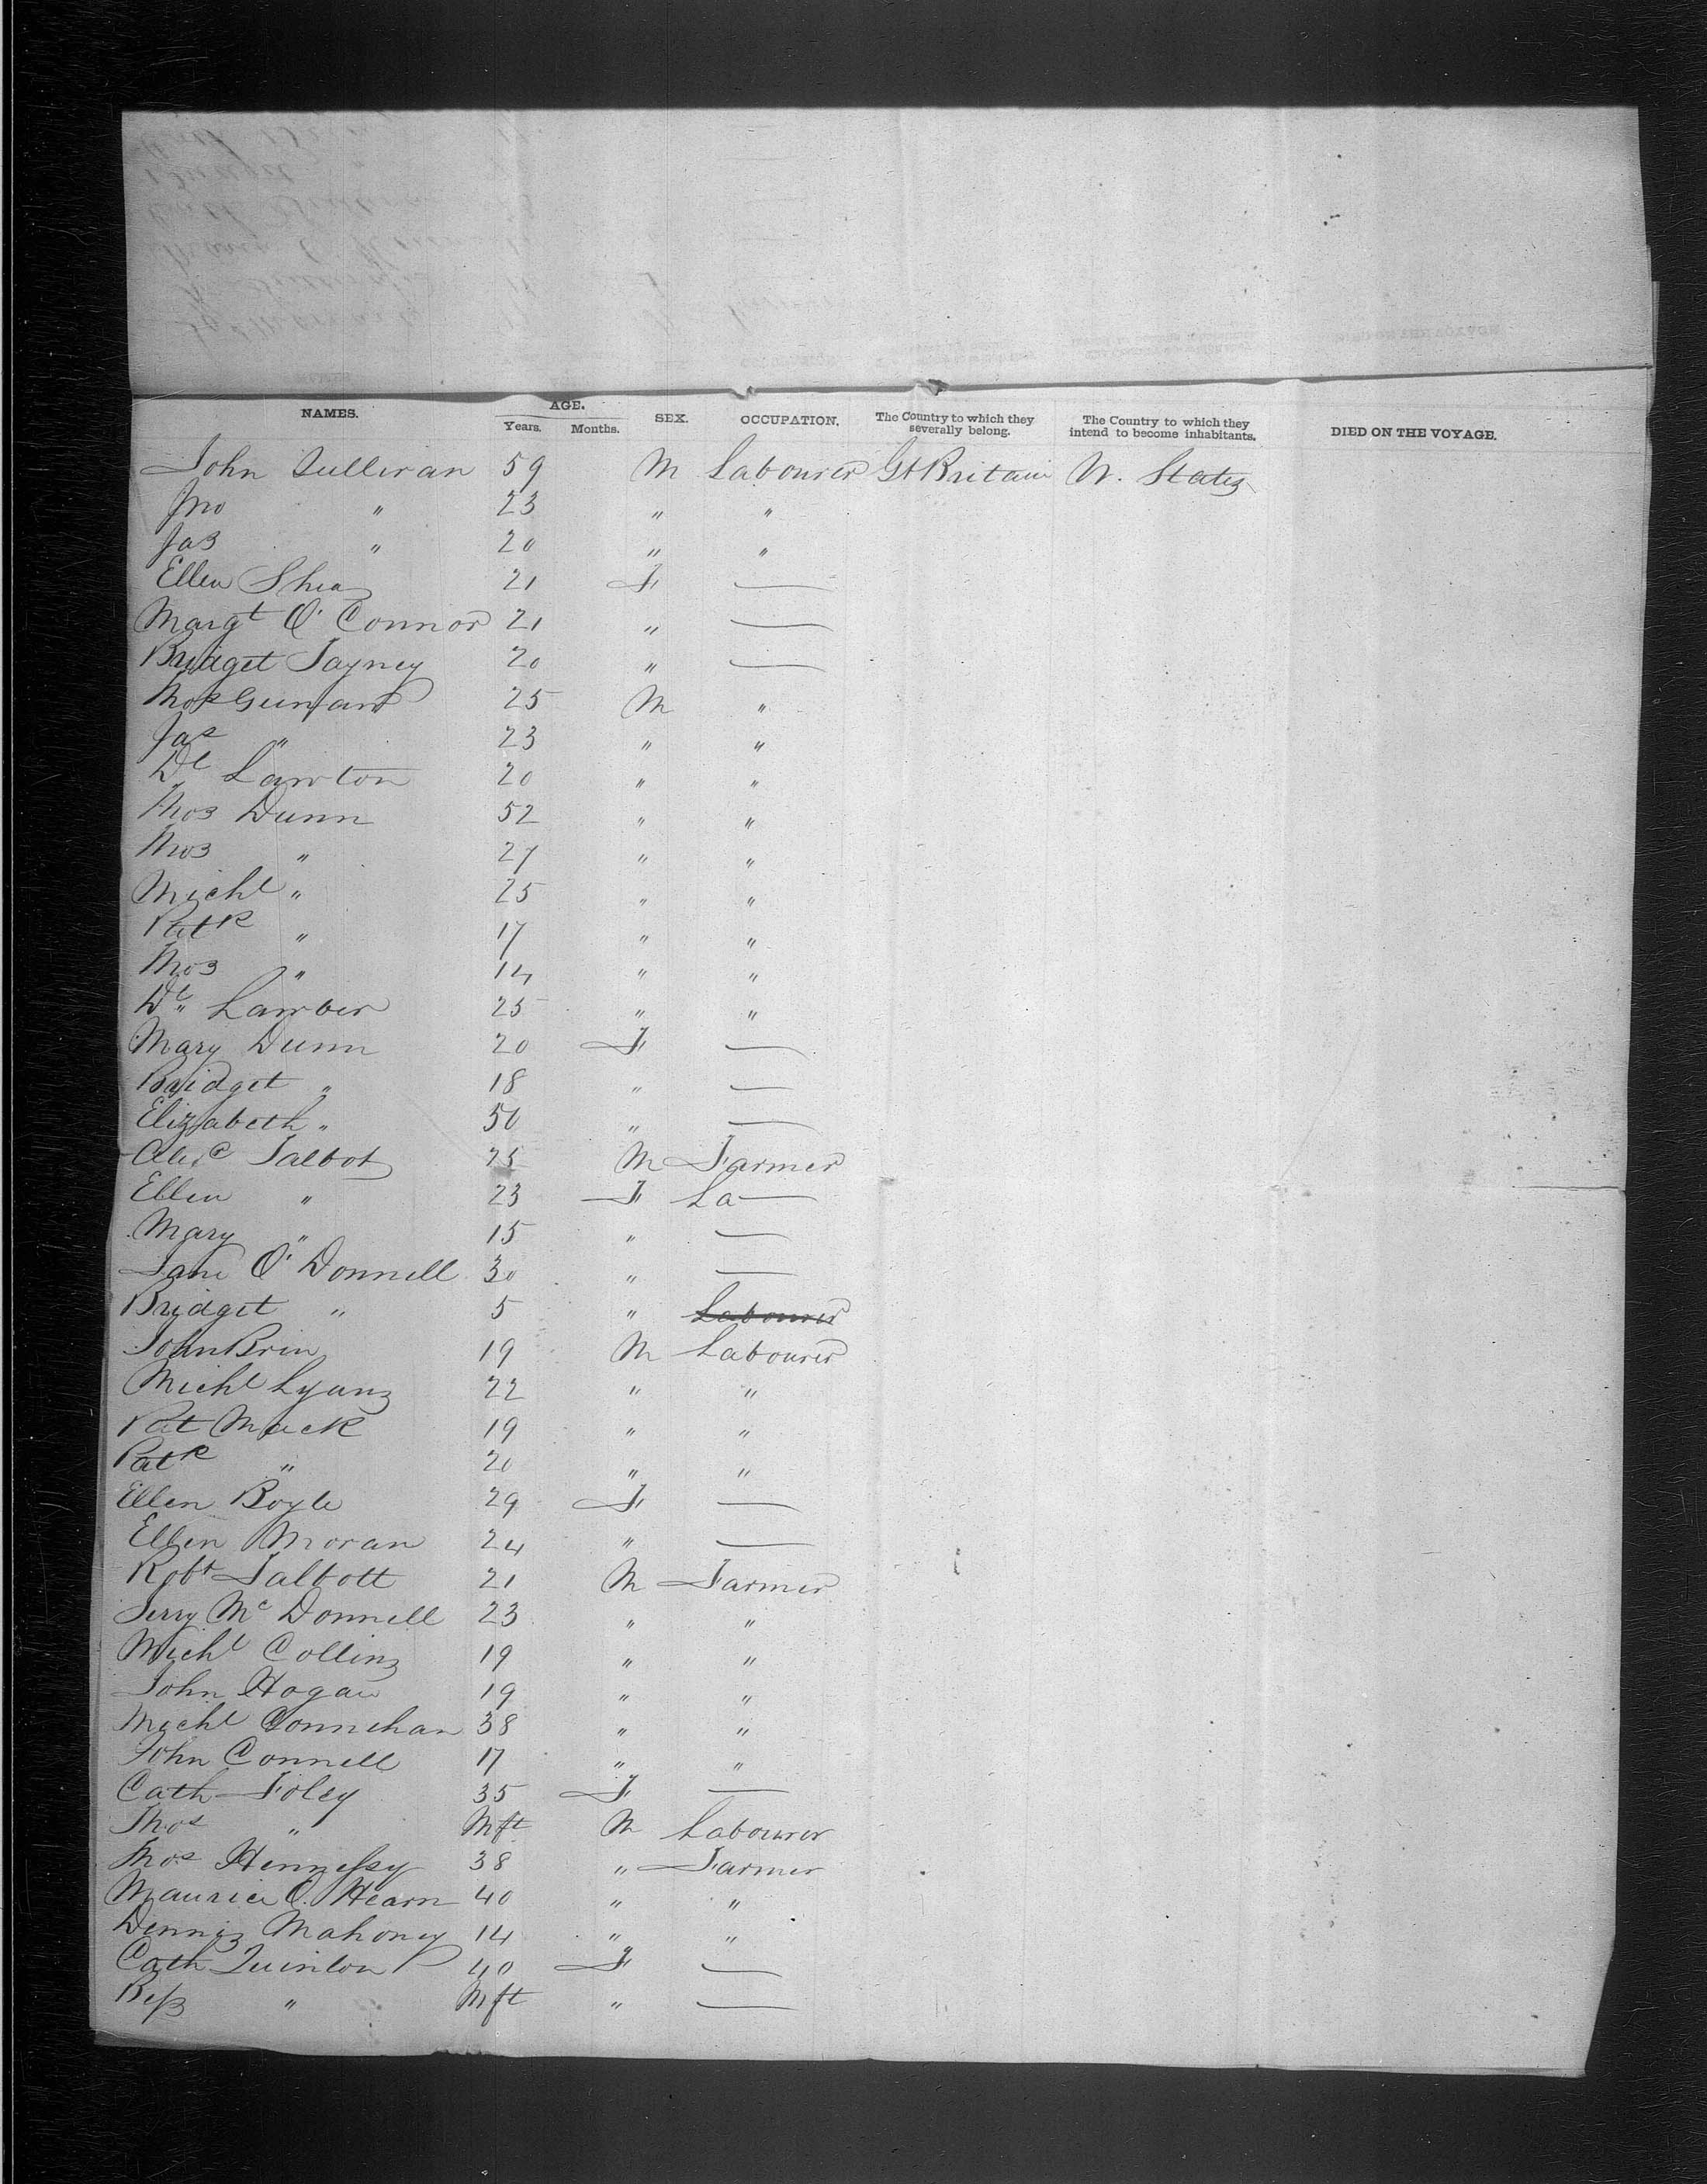 NAMES. AGE. Years. Months. SEX. OCCUPATION. The Country to which they severally belong. The Country to which they intend to become inhabitants. DIED ON THE VOYAGE.
John Sullivan 59 M Labourer Gt Britain U. States
Jno " 23 " "
Jas " 20 " "
Ellen Shea 21 F —
Margt O'Connor 21 " —
Bridget 20 " —
Thos 25 M "
Jas " 23 " "
Dl Lawton 20 " "
Thos Dunn 52 " "
Thos " 27 " "
Michl " 25 " "
Patk " 17 " "
Thos " 14 " "
Dl 25 " "
Mary Dunn 20 F —
Bridget " 18 " —
Elizabeth " 50 " —
Talbot 25 M Farmer
Ellen " 23 F La—
Mary " 15 " —
Jane O'Donnell 30 " —
Bridget " 5 " Labourer
John Brin 19 M Labourer
Michl Lyans 22 " "
Pat Mack 19 " "
Patk " 20 " "
Ellen Boyle 29 F —
Ellen Moran 24 " —
Robt Talbott 21 M Farmer
Jerry McDonnell 23 " "
Michl Collins 19 " "
John Hogan 19 " "
Michl Connehan 38 " "
John Connell 17 " "
Cath Foley 35 F —
Thos " Mft M Labourer
Thos Hennessy 38 " Farmer
Maurice O'Hearn 40 " "
Dennis Mahoney 14 " "
Cath Quinlon 40 F —
Bess " Mft " —